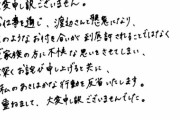 大変申し訳ございません。
仕事を通じ、渡辺さんと懇意になり、
のようなお付き合いが到底許されることではなく
ご家族の方に不快な思いをさせてしまい、
深くお詫び申し上げると共に、
私のあさはかな行動を反省いたします。
重ねまして、大変申し訳ございませんでした。